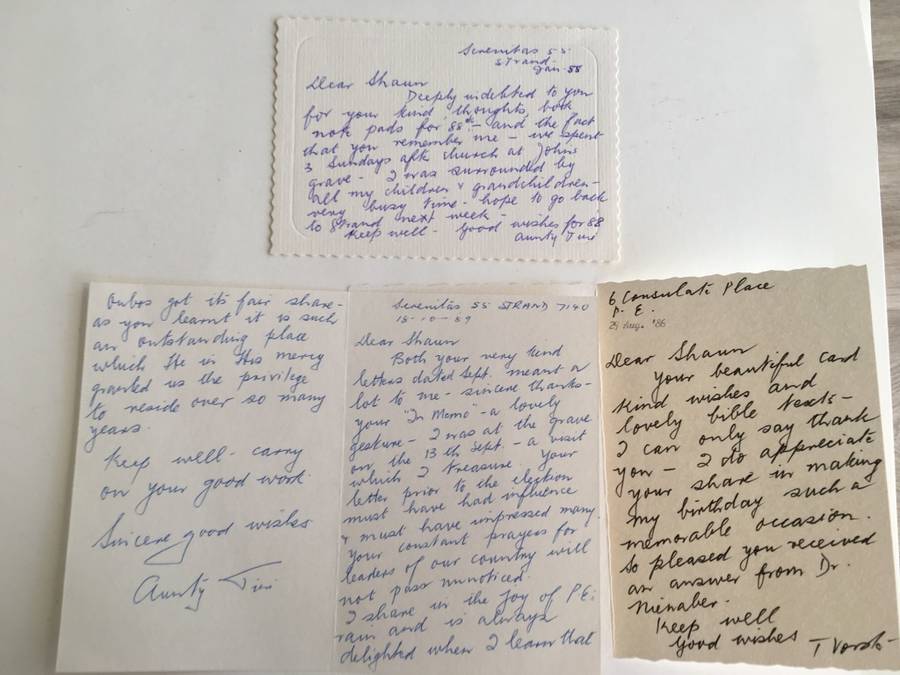 Serenitas 55
Strand
Jan. 88
Dear Shaun
Deeply indebted to you
for your kind thoughts, both
note pads for 88 - and the fact
that you remember me - we spent
3 Sundays after church at John's
grave - I was surrounded by
all my children & grandchildren -
very busy time - hope to go back
to Strand next week -
Keep well - Good wishes for 88
Aunty Tini
Oubos got its fair share -
as you learnt it is such
an outstanding place
which He in His mercy
granted us the privilege
to reside over so many
years.
Keep well - carry
on your good work.
Sincere good wishes
Aunty Tini
Serenitas 55 STRAND 7140
18-10-89
Dear Shaun
Both your very kind
letters dated Sept. meant a
lot to me - sincere thanks -
your "In Memo" - a lovely
gesture - I was at the grave
on the 13th Sept. - a visit
which I treasure. Your
letter prior to the election
must have had influence
& must have impressed many.
Your constant prayers for
leaders of our country will
not pass unnoticed.
I share in the joy of P.E.
rain and is always
delighted when I learn that
6 Consulate Place
P. E.
29 Aug. '86
Dear Shaun
Your beautiful card
kind wishes and
lovely bible texts -
I can only say thank
you - I do appreciate
your share in making
my birthday such a
memorable occasion.
So pleased you received
an answer from Dr.
Nienaber.
Keep well
Good wishes
T Vorster